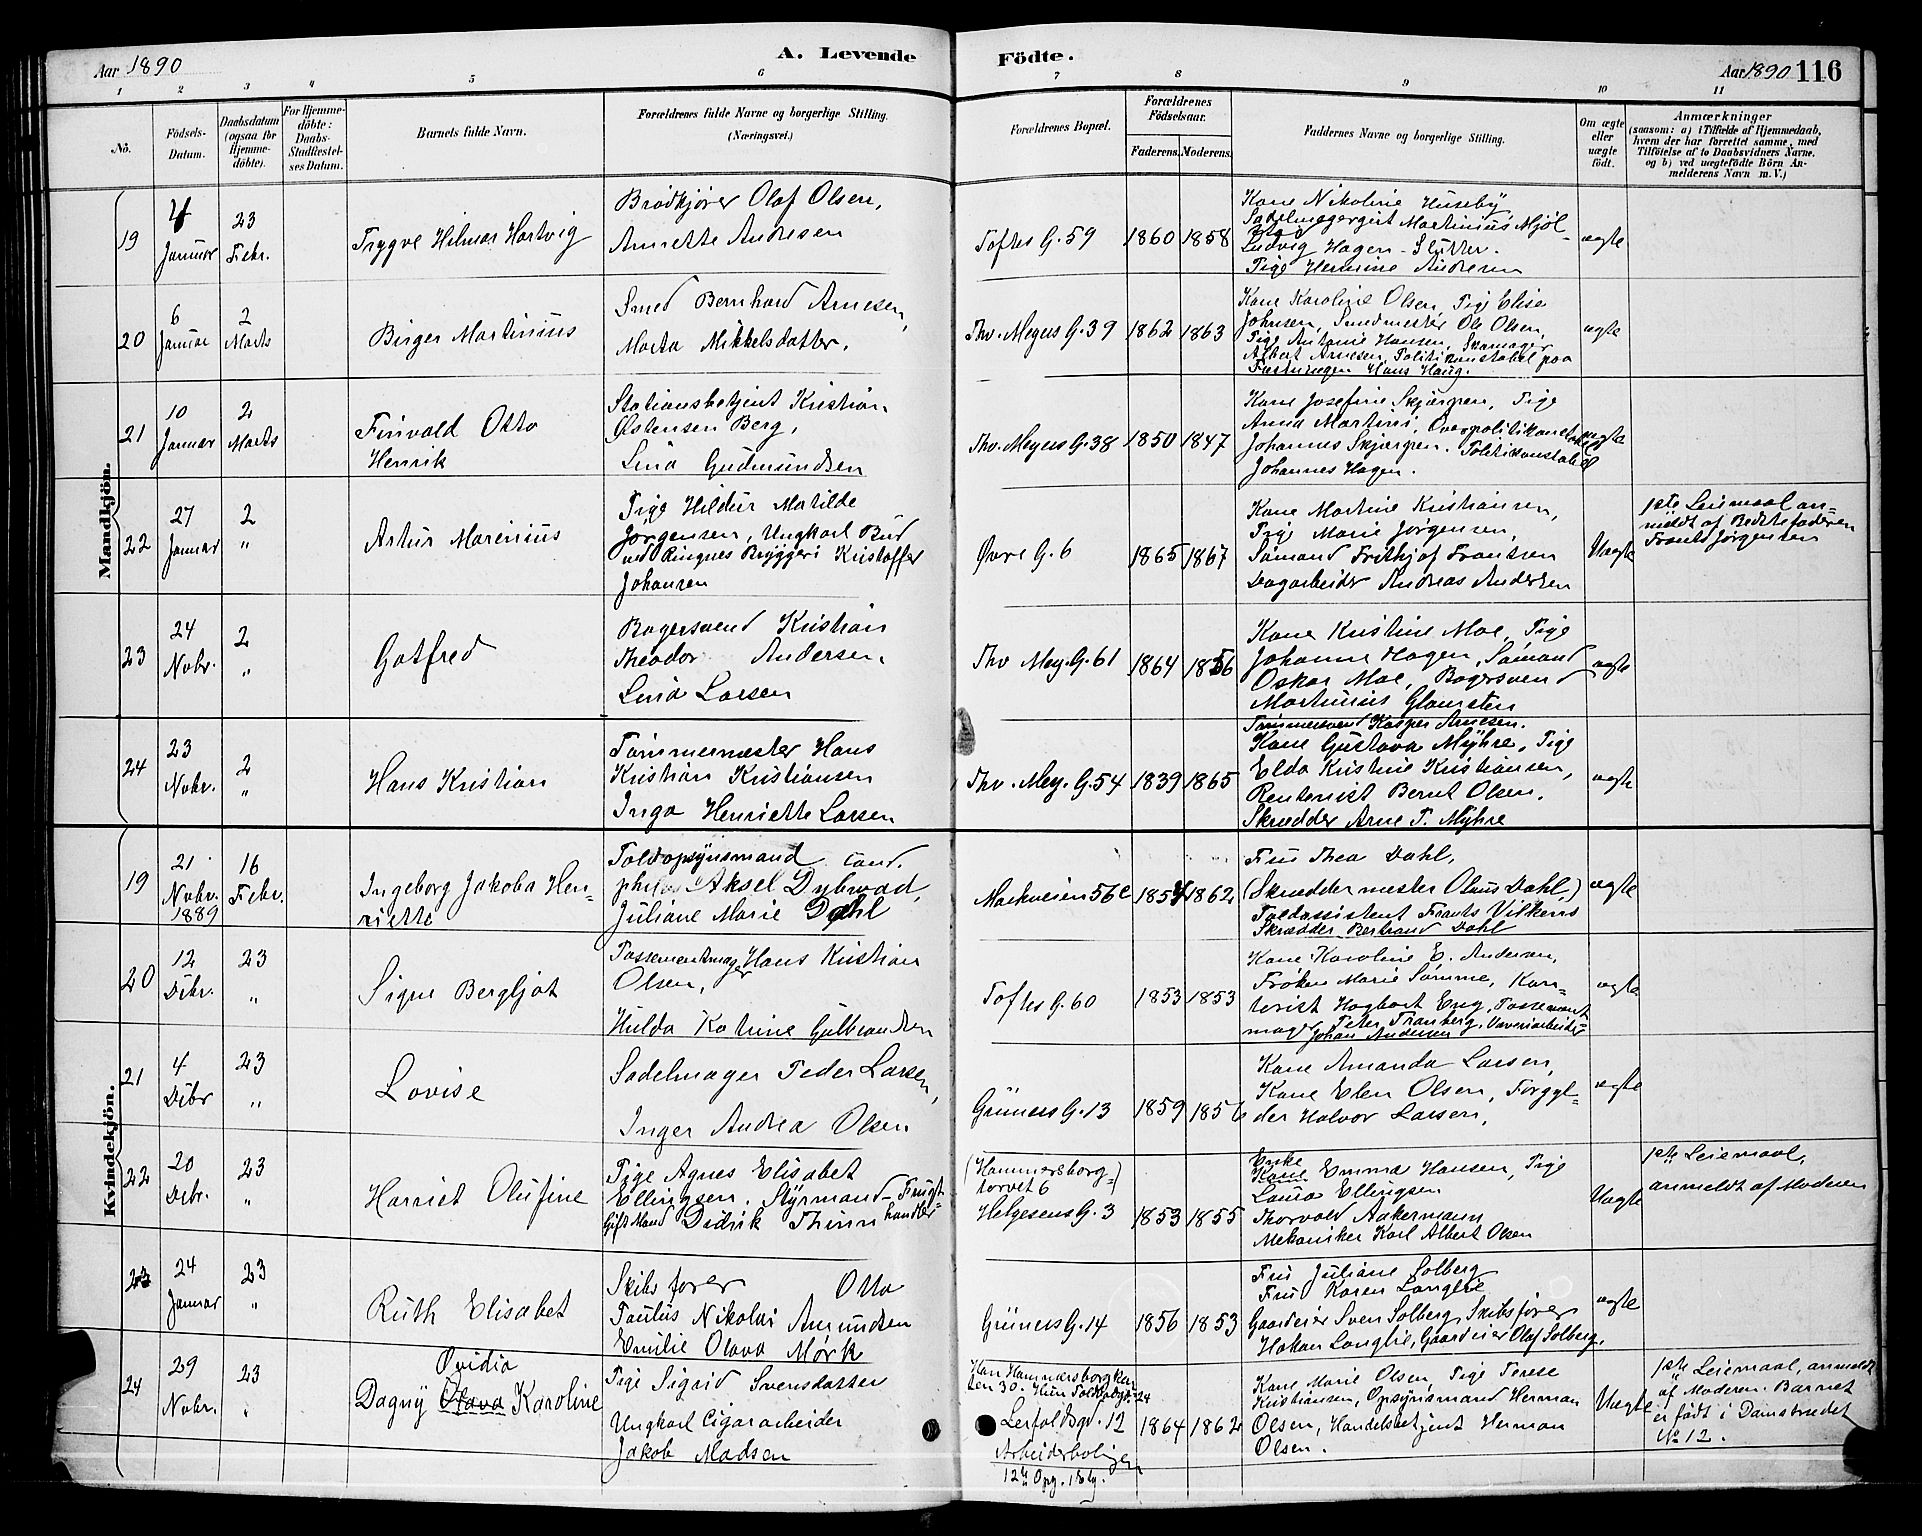 Aar 1890
A. Levende
Födte.
Aar 1890 116
1 2 3 4 5 6 7 8 9 10 11
No.
Födsels-
Datum.
Daabsdatum
(ogsaa for
Hjemme-
döbte).
For Hjemme-
döbte:
Daabs-
Stadfæstel-
ses Datum.
Barnets fulde Navn.
Forældrenes fulde Navne og borgerlige Stilling.
(Næringsvei.)
Forældrenes Bopæl.
Forældrenes
Födselsaar.
Faderens. Moderens.
Faddernes Navne og borgerlige Stilling.
Om ægte
eller
uægte
födt.
Anmærkninger
(saasom: a) i Tilfælde af Hjemmedaab,
hvem der har forrettet samme, med
Tilföielse af to Daabsvidners Navne,
og b) ved uægtefödte Börn An-
melderens Navn m. V.)
Mandkjön.
19
4
Januar
23
Febr.
Trygve Hilmar Hartvig
Brödkjører Olaf Olsen,
Annette Andresen
Toftes G. 59
1860 1858
Kone Nikoline Huseby
Sadelmagergut Martinius Mjöl-
Ludvig Hagen - Slutter.
Pige Hermine Andresen
ægte
20
6
Januar
2
Marts
Birger Martinius
Smed Bernhard Arnesen,
Marta Mikkelsdatter.
Thv. Meyers G. 39
1862 1863
Kone Karoline Olsen, Pige Elise
Johnsen, Smedmester Ole Olsen,
Pige Antonie Hansen, Skomager
Albert Arnesen, Politikonstabel paa
Fæstningen Hans Haug.
ægte
21
10
Januar
2
Marts
Finvald Otto
Henrik
Stationsbetjent Kristian
Østensen Berg,
Lina Gudmundsen
Thv. Meyers G. 38
1850 1847
Kone Josefine Skjørpen, Pige
Anna Martini, Overpolitikonstabel
Johannes Skjørpen. Politikonstabel
Johannes Hagen.
ægte
22
27
Januar
2
"
Artur Marenius
Pige Hildur Matilde
Jørgensen, Ungkarl Bud
ved Ringnes Bryggeri Kristoffer
Johansen
Øvre G. 6
1865 1867
Kone Martine Kristiansen,
Pige Marie Jørgensen,
Sømand Frithjof Frantsen
Dagarbeider Andreas Andersen
Uægte
1ste Leiemaal an-
meldt af Bedstefaderen
Frants Jørgensen
23
24
Nvbr.
2
"
Gotfred
Bagersvend Kristian
Theodor Andersen,
Lina Larsen
Thv Mey. G. 61
1864 1856
Kone Kristine Moe, Pige
Johanne Hagen, Sømand
Oskar Moe, Bagersvend
Martinius Glomsten
ægte
24
23
Nvbr.
2
"
Hans Kristian
Tømmermester Hans
Kristian Kristiansen
Inga Henriette Larsen
Thv. Mey. G. 54
1839 1865
Tømmersvend Kasper Arnesen.
Kone Gustava Myhre, Pige
Elda Kristine Kristiansen,
Rentenist Bernt Olsen,
Skrædder Arne P. Myhre
ægte
Kvindekjön.
19
21
Nvbr.
1889
16
Febr.
Ingeborg Jakoba Hen-
riette
Toldopsynsmand cand.
philos Aksel Dybwad,
Juliane Marie Dahl
Markveien 56c
1854 1862
Fru Thea Dahl,
(Skræddermester Olaus Dahl,)
Toldassistent Frants Vilkens
Skrædder Bertrand Dahl
ægte
20
12
Dcbr.
23
"
Signe Bergljot
Possementmager Hans Kristian
Olsen,
Hulda Katrine Gulbrandsen
Toftes G. 60
1853 1853
Kone Karoline E. Andersen,
Frøken Marie Sømme, Kon-
torist Hagbart Eng, Possement
mager Peter Tranberg, Væveriarbeider
Johan Andersen
ægte
21
4
Dcbr
23
"
Lovise
Sadelmager Peder Larsen,
Inger Andrea Olsen
Grüners G. 13
1859 1856
Kone Amanda Larsen,
Kone Elen Olsen, Forgyl-
der Halvor Larsen,
ægte
22
20
Dcbr.
23
"
Harriet Olufine
Pige Agnes Elisabet
Ellingsen. Styrmand - Frugt-
handler
Gift Mand Didrik Thinn
(Hammersborg-
torvet 6)
Helgesens G. 3
1853 1855
Enke
Kone Emma Hansen, Pige
Laura Ellingsen
Thorvald Aakermann
Mekaniker Karl Albert Olsen
Uægte
1ste Leiemaal,
anmeldt af Moderen
23
24
Januar
23
"
Ruth Elisabet
Skibsfører Otto
Paulus Nikolai Amundsen
Emilie Olava Mørk
Grüners G. 14
1856 1853
Fru Juliane Solberg
Fru Karen Langlie
Gaardeier Sven Solberg, Skibsfører
Hakon Langlie, Gaardeier Olaf Solberg.
ægte
24
29
Nvbr.
23
"
Ovidia
Dagny Olava Karoline
Pige Sigrid Svensdatter
Ungkarl Cigararbeider
Jakob Madsen
Han Hammersborgbak
ken 30. Hun Toldbodgd. 24
Lerfoldsgt. 12
Arbeiderboligen
12te Opg. 1 Etg.
1864 1862
Kone Marie Olsen, Pige Terese
Kristiansen, Opsynsmand Herman
Olsen, Handelsbetjent Herman
Olsen.
Uægte
1ste Leiemaal, anmeldt
af Moderen. Barnet
er født i Damstredet
No 12.